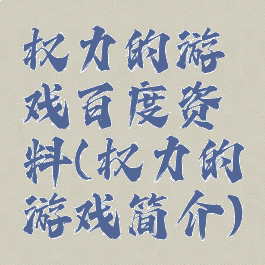 权力的游
戏百度资
料(权力的
游戏简介)